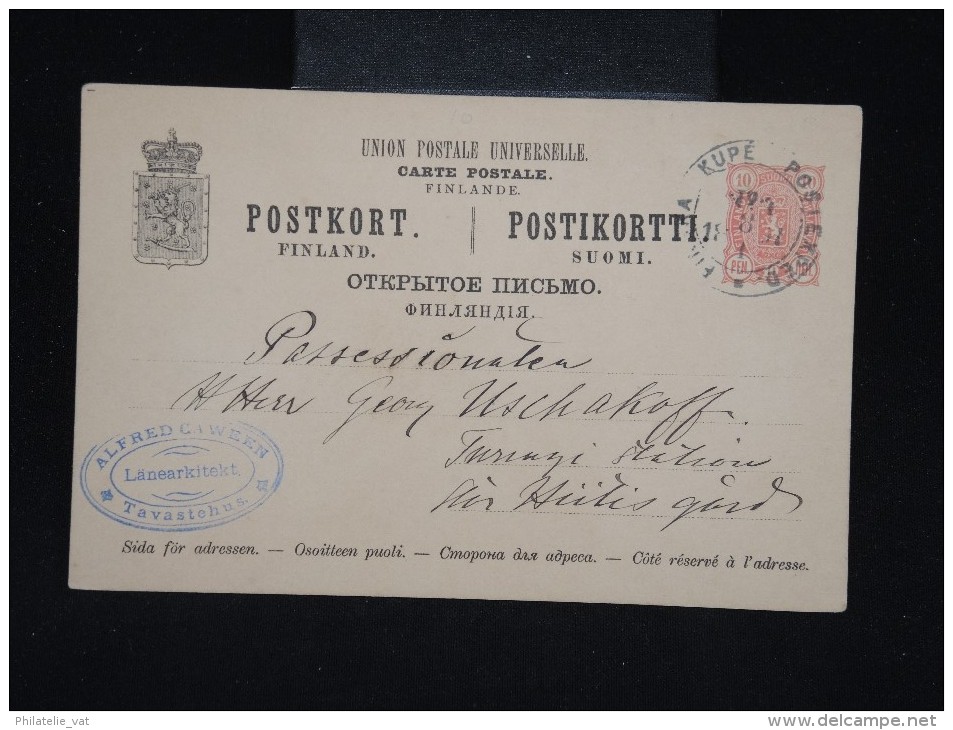 UNION POSTALE UNIVERSELLE.
CARTE POSTALE.
FINLANDE.
POSTKORT. POSTIKORTTI
FINLAND. SUOMI.
ОТКРЫТОЕ ПИСЬМО.
ФИНЛЯНДІЯ.
KUPÉ POSTEXPED.
10 SUOMI 10
PEN.
Possessionaten
Herr Georg Uschakoff.
Turengi station
Hiitis gård
ALFRED CAWÉEN
Länearkitekt.
Tavastehus.
Sida för adressen. — Osoitteen puoli. — Сторона для адреса. — Côté réservé à l'adresse.
Philatelie_vat
http://www.delcampe.net